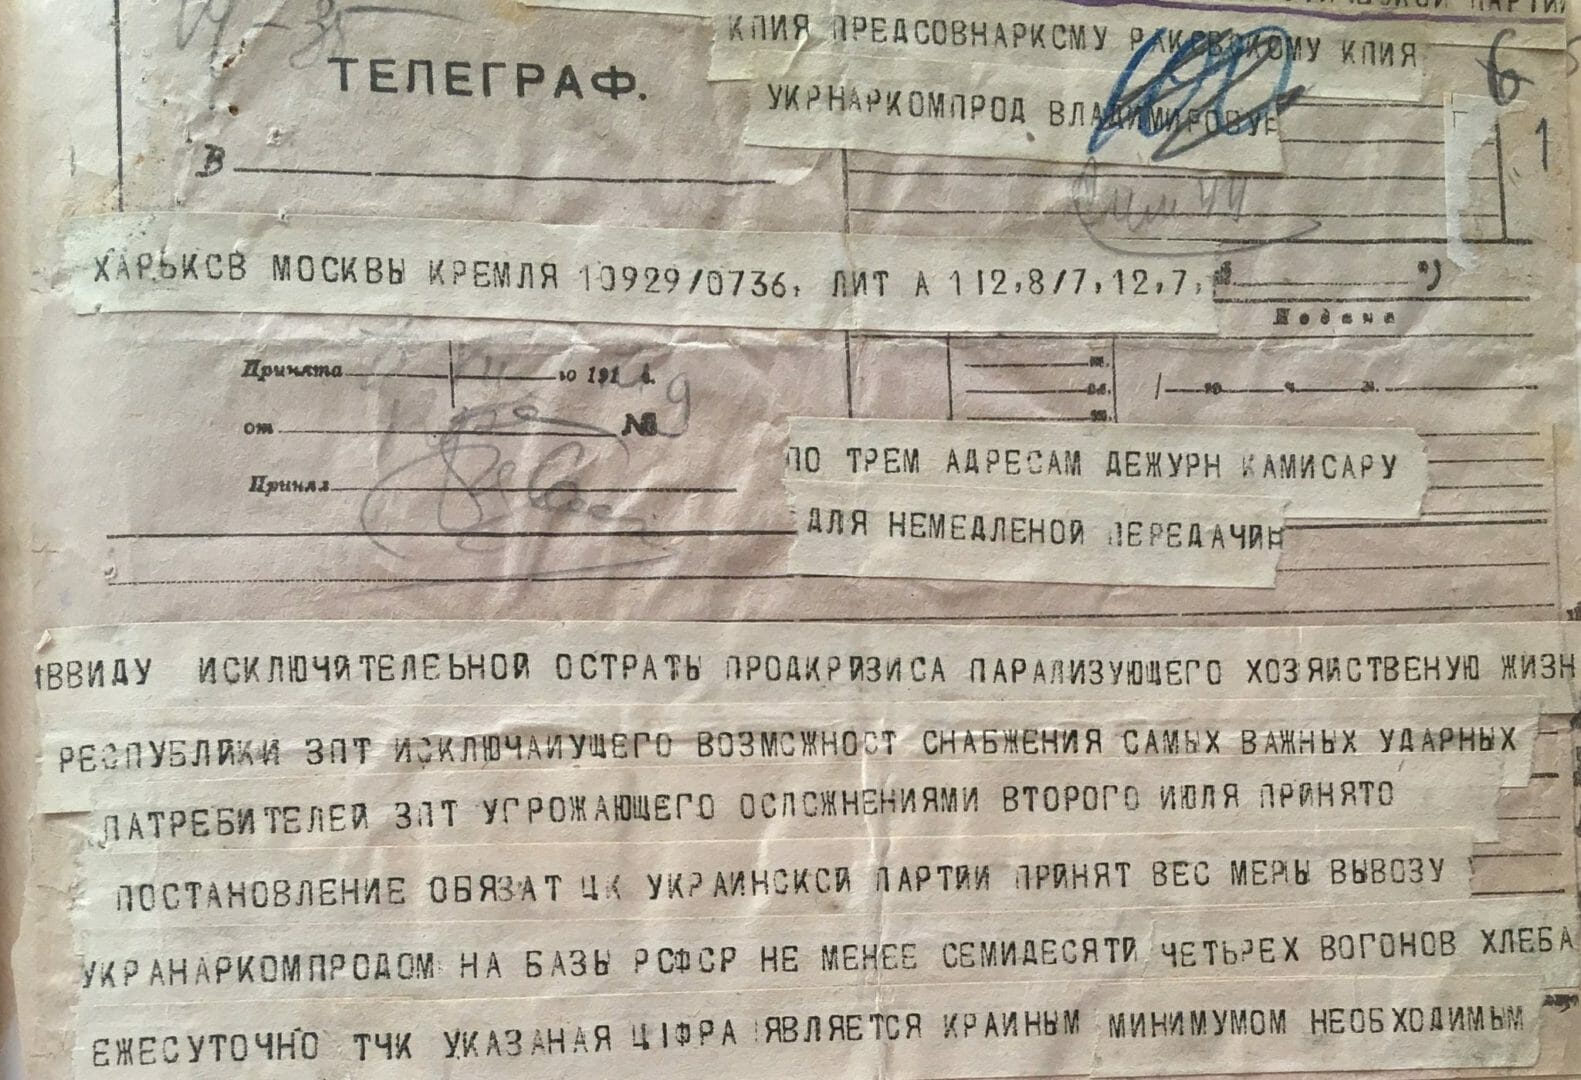 ПАРТИИ
КПИЯ ПРЕДСОВНАРКСМУ РАКОВСКОМУ КПИЯ
ТЕЛЕГРАФ.
УКРНАРКОМПРОД ВЛАДИМИРОВУЕ
6
1
В
ХАРЬКСВ МОСКВЫ КРЕМЛЯ 10929/0736, ЛИТ А 112,8/7,12,7,
Подана
Принята го 191 г.
от №
Принял
ПО ТРЕМ АДРЕСАМ ДЕЖУРН КАМИСАРУ
ДЛЯ НЕМЕДЛЕНОЙ ПЕРЕДАЧИН
ВВИДУ ИСКЛЮЧИТЕЛЕЬНОЙ ОСТРАТЬ ПРОДКРИЗИСА ПАРАЛИЗУЮЩЕГО ХОЗЯЙСТВЕНУЮ ЖИЗН
РЕСПУБЛИКИ ЗПТ ИСКЛЮЧАИУЩЕГО ВОЗМСЖНОСТ СНАБЖЕНИЯ САМЫХ ВАЖНЫХ УДАРНЫХ
ПАТРЕБИТЕЛЕЙ ЗПТ УГРОЖАЮЩЕГО ОСЛСЖНЕНИЯМИ ВТОРОГО ИЮЛЯ ПРИНЯТО
ПОСТАНОВЛЕНИЕ ОБЯЗАТ ЦК УКРАИНСКСЙ ПАРТИИ ПРИНЯТ ВЕС МЕРЫ ВЫВОЗУ
УКРАНАРКОМПРОДОМ НА БАЗЫ РСФСР НЕ МЕНЕЕ СЕМИДЕСЯТИ ЧЕТЫРЕХ ВОГОНОВ ХЛЕБА
ЕЖЕСУТОЧНО ТЧК УКАЗАНАЯ ЦІФРА ЯВЛЯЕТСЯ КРАИНЫМ МИНИМУМОМ НЕОБХОДИМЫМ